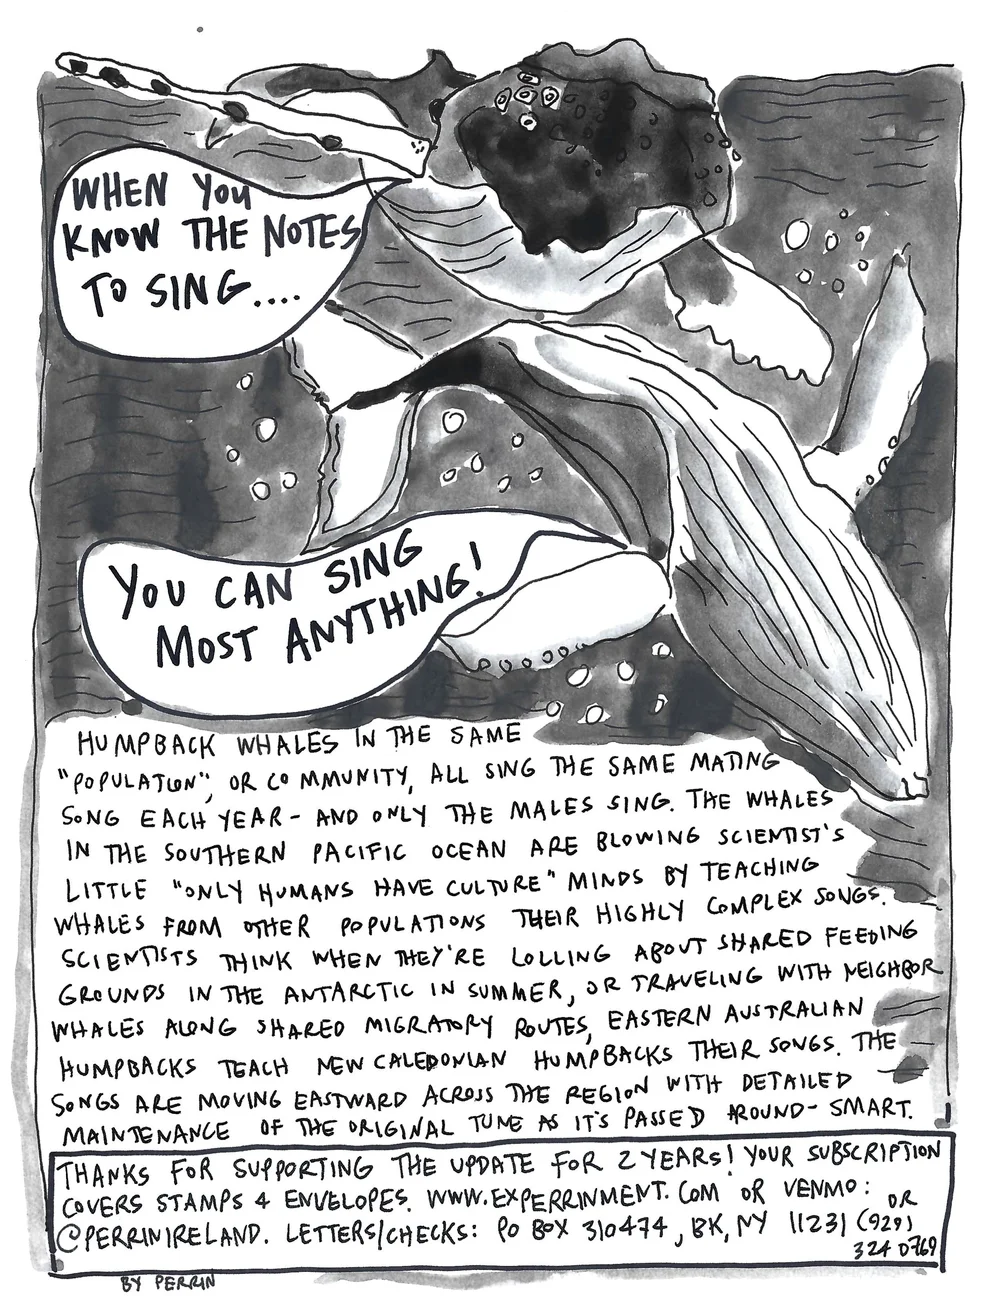 WHEN YOU
KNOW THE NOTES
TO SING....
YOU CAN SING
MOST ANYTHING!
HUMPBACK WHALES IN THE SAME
"POPULATION", OR COMMUNITY, ALL SING THE SAME MATING
SONG EACH YEAR - AND ONLY THE MALES SING. THE WHALES
IN THE SOUTHERN PACIFIC OCEAN ARE BLOWING SCIENTIST'S
LITTLE "ONLY HUMANS HAVE CULTURE" MINDS BY TEACHING
WHALES FROM OTHER POPULATIONS THEIR HIGHLY COMPLEX SONGS.
SCIENTISTS THINK WHEN THEY'RE LOLLING ABOUT SHARED FEEDING
GROUNDS IN THE ANTARCTIC IN SUMMER, OR TRAVELING WITH NEIGHBOR
WHALES ALONG SHARED MIGRATORY ROUTES, EASTERN AUSTRALIAN
HUMPBACKS TEACH NEW CALEDONIAN HUMPBACKS THEIR SONGS. THE
SONGS ARE MOVING EASTWARD ACROSS THE REGION WITH DETAILED
MAINTENANCE OF THE ORIGINAL TUNE AS IT'S PASSED AROUND - SMART.
THANKS FOR SUPPORTING THE UPDATE FOR 2 YEARS! YOUR SUBSCRIPTION
COVERS STAMPS & ENVELOPES. WWW.EXPERRINMENT.COM OR VENMO:
@PERRINIRELAND. LETTERS/CHECKS: PO BOX 310474, BK, NY 11231 OR (929)
324 0769
BY PERRIN